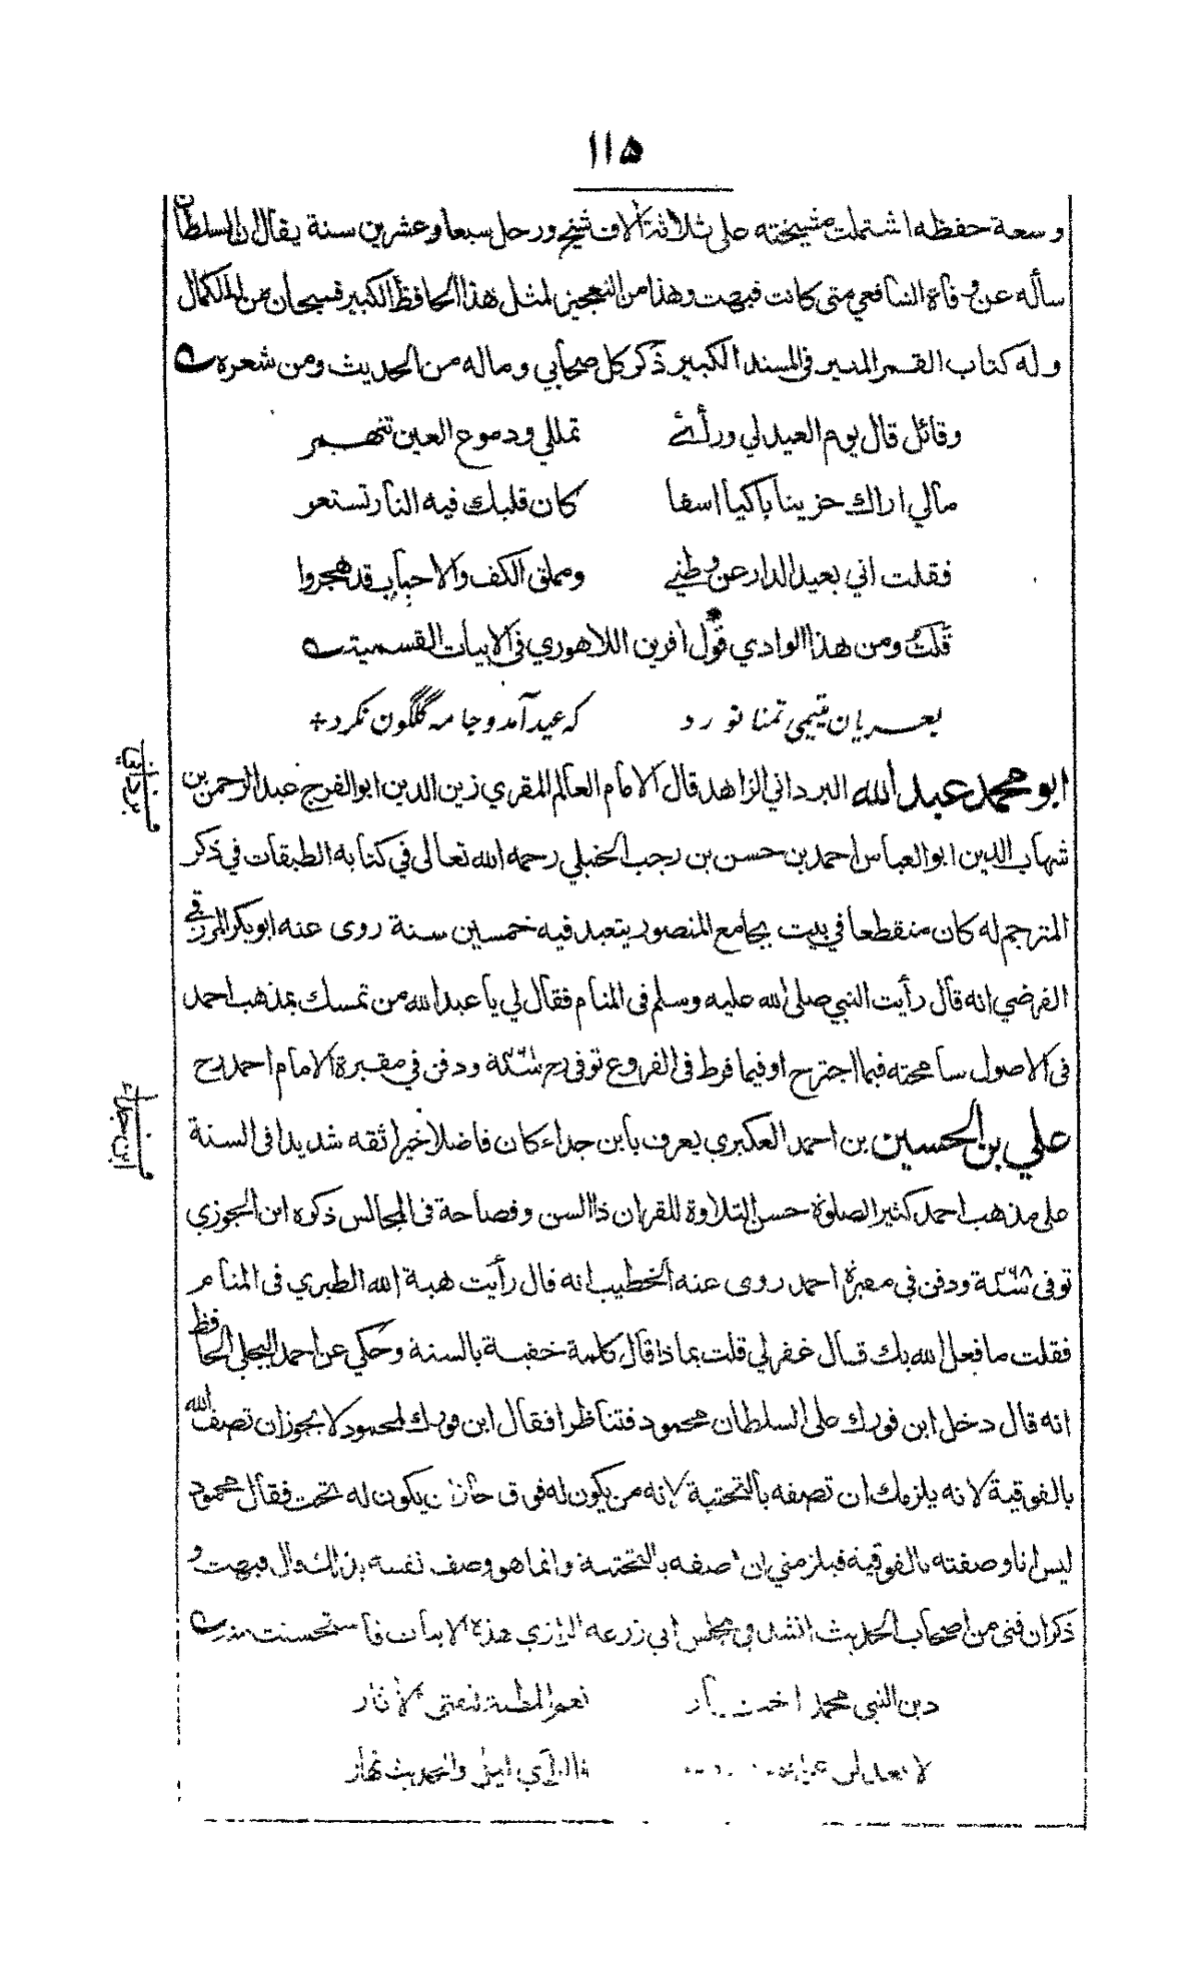 ١١٥
وسعة حفظه اشتملت مشيخته على ثلاثة آلاف شيخ ورحل سبعا وعشرين سنة يقال ان السلطان
سأله عن وفاة الشافعي متى كانت فبهت وهذا من التعجيز لمثل هذا الحافظ الكبير فسبحان من له الكمال
وله كتاب القمر المنير في المسند الكبير ذكر كل صحابي وماله من الحديث ومن شعره
وقائل قال يوم العيد لي ورأى تململي ودموع العين تنهمر
مالي اراك حزينا باكيا اسفا كان قلبك فيه النار تستعر
فقلت اني بعيد الدار عن وطني ومملق الكف والاحباب قد هجروا
قلت ومن هذا الوادي قول آفرين اللاهوري في الابيات القسمية
بعريان يتيمى تمنا نورد كه عيد آمد و جامه گلگون نكرد
ابو محمد عبد الله البرداني الزاهد قال الامام العالم المقري زين الدين ابو الفرج عبد الرحمن بن
برداني
شهاب الدين ابو العباس احمد بن حسن بن رجب الحنبلي رحمه الله تعالى في كتابه الطبقات في ذكر
المترجم له كان منقطعا في بيت بجامع المنصور يتعبد فيه خمسين سنة روى عنه ابو بكر المزرقي
الفرضي انه قال رأيت النبي صلى الله عليه وسلم في المنام فقال لي يا عبد الله من تمسك بمذهب احمد
في الاصول سامحته فيما اجترح او فيما فرط في الفروع توفي رح سنة ٤٦١ ودفن في مقبرة الامام احمد رح
علي بن الحسين بن احمد العكبري يعرف بابن جداء كان فاضلا خيرا ثقه شديدا في السنة
ابن جداء
على مذهب احمد كثير الصلوة حسن التلاوة للقران ذا السن وفصاحة في المجالس ذكره ابن الجوزي
توفي سنة ٤٦٨ ودفن في مقبرة احمد روى عنه الخطيب انه قال رأيت هبة الله الطبري في المنام
فقلت ما فعل الله بك قال غفر لي قلت بماذا قال كلمة خفية بالسنة وحكي عن احمد البجلي الحافظ
انه قال دخل ابن فورك على السلطان محمود فتناظرا فقال ابن فورك لمحمود لا يجوز ان تصف الله
بالفوقية لانه يلزمك ان تصفه بالتحتية لانه من يكون له فوق جاز ان يكون له تحت فقال محمود
ليس انا وصفته بالفوقية فيلزمني ان اصفه بالتحتية وانما هو وصف نفسه بذلك قال فبهت و
ذكر ان فتى من اصحاب الحديث انشد في مجلس ابي زرعه الرازي هذه الابيات فاستحسنت منه
دين النبي محمد نعم المطية للفتى الآثار
لا تعدلن عن فالرأي ليل والحديث نهار